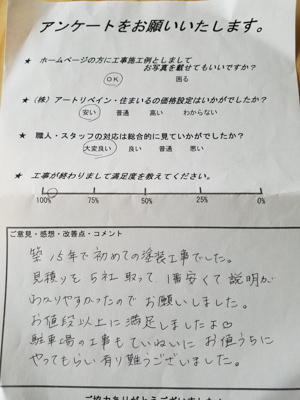 アンケートをお願いいたします。
★ ホームページの方に工事施工例としまして
お写真を載せてもいいですか？
OK 困る
★ （株）アートリペイント・住まいるの価格設定はいかがでしたか？
安い 普通 高い わからない
★ 職人・スタッフの対応は総合的に見ていかがでしたか？
大変良い 良い 普通 悪い
★ 工事が終わりまして満足度を教えてください。
100% 75% 50% 25% 0%
ご意見・感想・改善点・コメント
築15年で初めての塗装工事でした。
見積りを5社取って1番安くて説明が
わかりやすかったのでお願いしました。
お値段以上に満足しましたよ♡
駐車場の工事もていねいにお値うちに
やってもらい有り難うございました。
ご協力ありがとうございました！